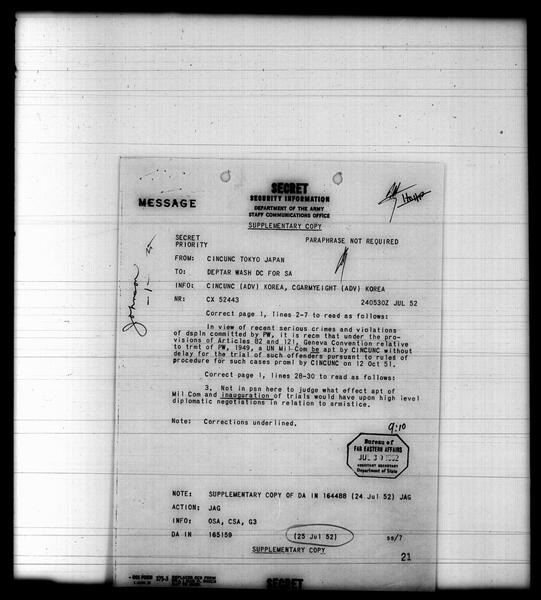 SECRET
SECURITY INFORMATION
MESSAGE
DEPARTMENT OF THE ARMY
STAFF COMMUNICATIONS OFFICE
SUPPLEMENTARY COPY
SECRET
PRIORITY
PARAPHRASE NOT REQUIRED
FROM: CINCUNC TOKYO JAPAN
TO: DEPTAR WASH DC FOR SA
INFO: CINCUNC (ADV) KOREA, CGARMYEIGHT (ADV) KOREA
NR: CX 52443 240530Z JUL 52
Correct page 1, lines 2-7 to read as follows:
In view of recent serious crimes and violations
of dspln committed by PW, it is recm that under the pro-
visions of Articles 82 and 121, Geneva Convention relative
to trmt of PW, 1949, a UN Mil Com be apt by CINCUNC without
delay for the trial of such offenders pursuant to rules of
procedure for such cases proml by CINCUNC on 12 Oct 51.
Correct page 1, lines 28-30 to read as follows:
3. Not in psn here to judge what effect apt of
Mil Com and inauguration of trials would have upon high level
diplomatic negotiations in relation to armistice.
Note: Corrections underlined.
Johnson
9:10
Bureau of
FAR EASTERN AFFAIRS
JUL 1952
ASSISTANT SECRETARY
Department of State
NOTE: SUPPLEMENTARY COPY OF DA IN 164488 (24 Jul 52) JAG
ACTION: JAG
INFO: OSA, CSA, G3
DA IN 165159 (25 Jul 52) ss/7
SUPPLEMENTARY COPY
21
OCS FORM 375-3
SECRET